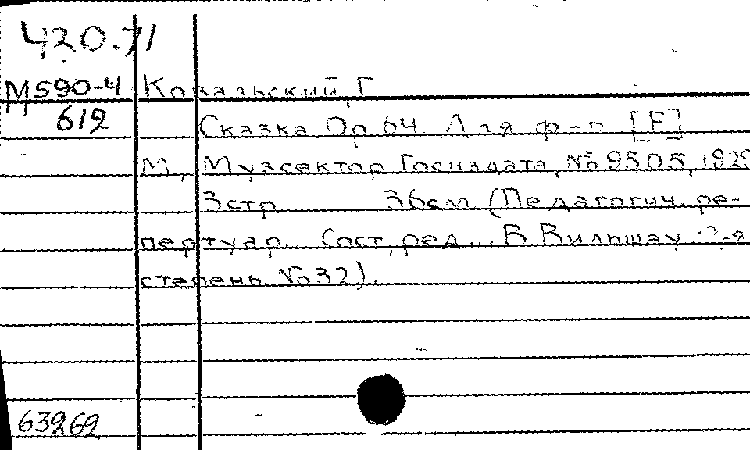 420.71
М590-4 Ковальский, Г.
612 Сказка Op. 64. Для ф-п. [F]
М., Музсектор Госиздата, № 9505, 192
3 стр. 36 см (Педагогич. ре-
пертуар. Сост., ред. В. Вильшау. 2-я
степень № 32).
63962